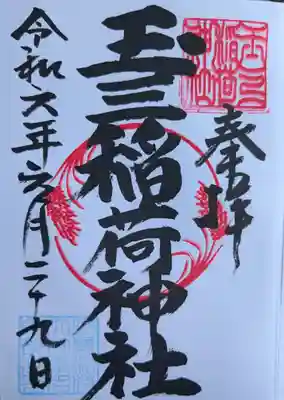 奉拝
玉三稲荷神社
令和六年六月二十九日